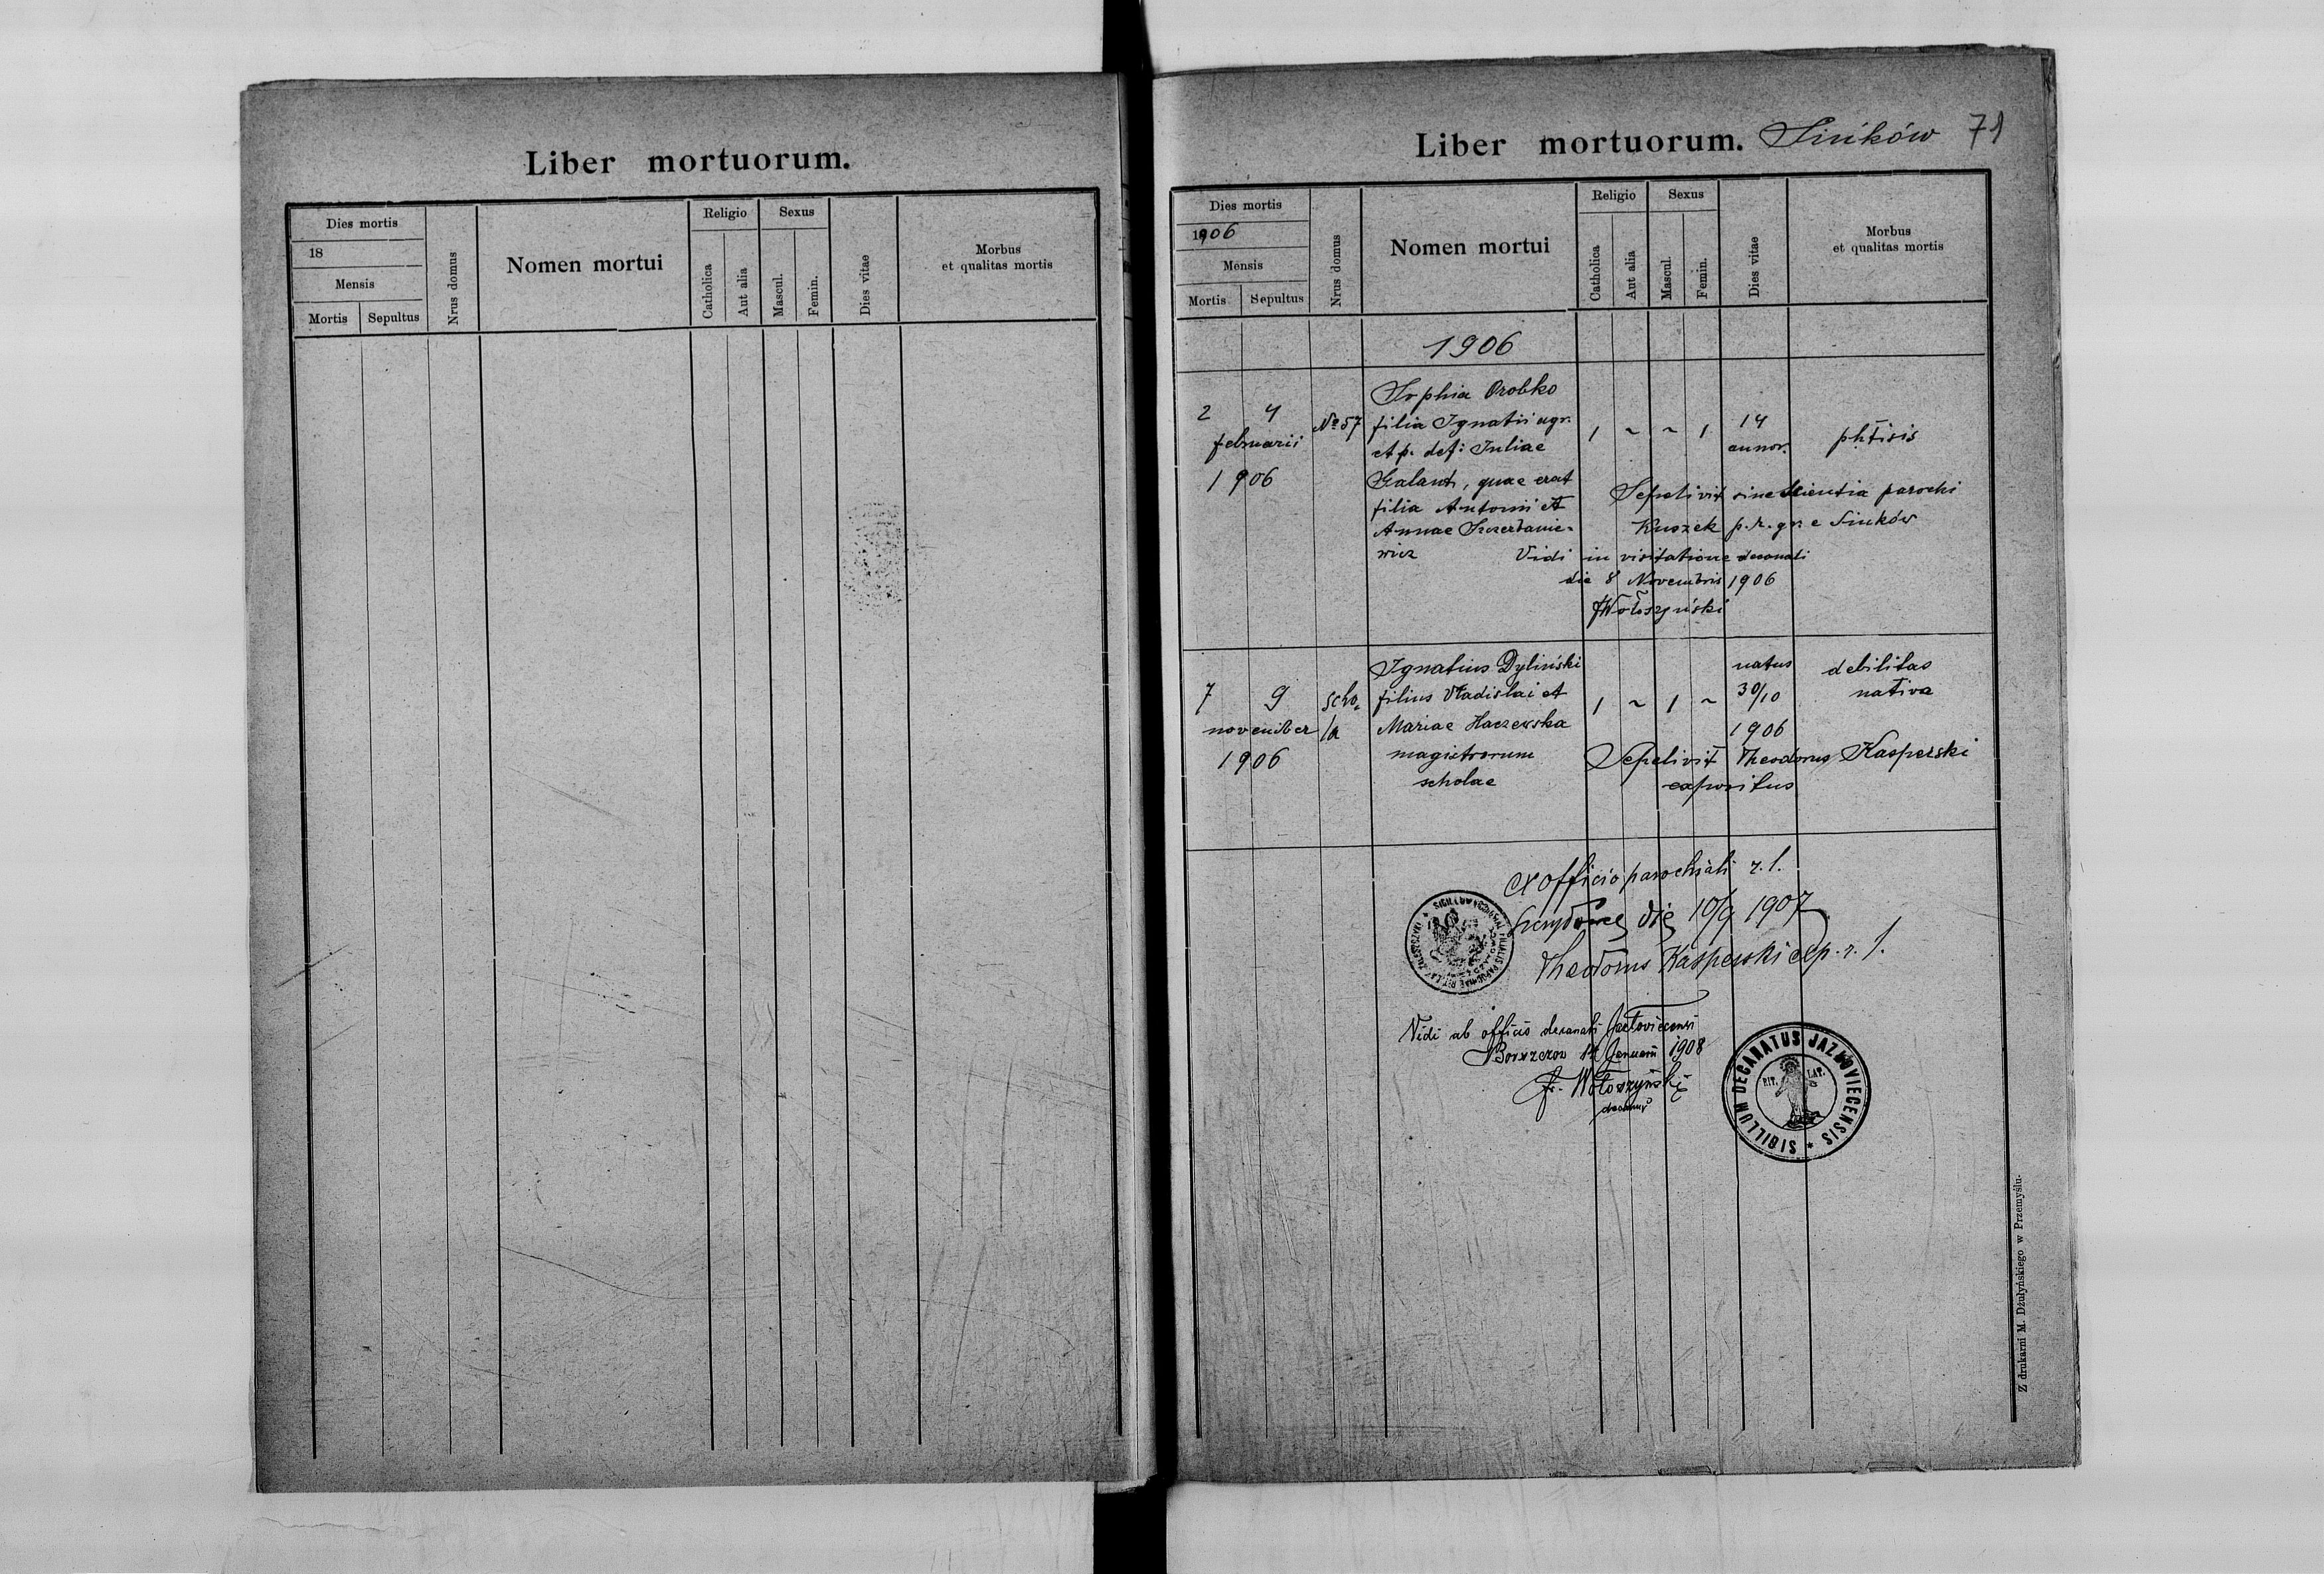 Liber mortuorum.
Dies mortis
18
Mensis
Mortis Sepultus
Nrus domus
Nomen mortui
Religio
Catholica
Aut alia
Sexus
Mascul.
Femin.
Dies vitae
Morbus
et qualitas mortis
Liber mortuorum. Sinków 71
Dies mortis
1906
Mensis
Mortis Sepultus
Nrus domus
Nomen mortui
Religio
Catholica
Aut alia
Sexus
Mascul.
Femin.
Dies vitae
Morbus
et qualitas mortis
1906
2 4
februarii
1906
№ 57
Sophia Orobko
filia Ignatii agr.
et p. def: Juliae
Galant, quae erat
filia Antonii et
Annae Szczerbanie-
wicz
1 ~ ~ 1
14
annor.
phtisis
Sepelivit sine scientia parochi
Kuszek p. r. gr. e Sinków
Vidi in visitatione decanali
die 8 Novembris 1906
Wołoszyński
7 9
november
1906
scho-
la
Ignatius Dyliński
filius Vladislai et
Mariae Haczewska
magistrorum
scholae
1 ~ 1 ~
natus
30/10
1906
debilitas
nativa
Sepelivit Theodorus Kasperski
expositus
Ex officio parochiali r. l.
die 10/9 1907
Theodorus Kasperski exp. r. l.
Vidi ab officio decanali
Borszczow 14 Januarii 1908
Fr. Wołoszyński
decanus
SIGILLUM DECANATUS JAZŁOVIECENSIS *
RIT. LAT.
Z drukarni M. Dżułyńskiego w Przemyślu.